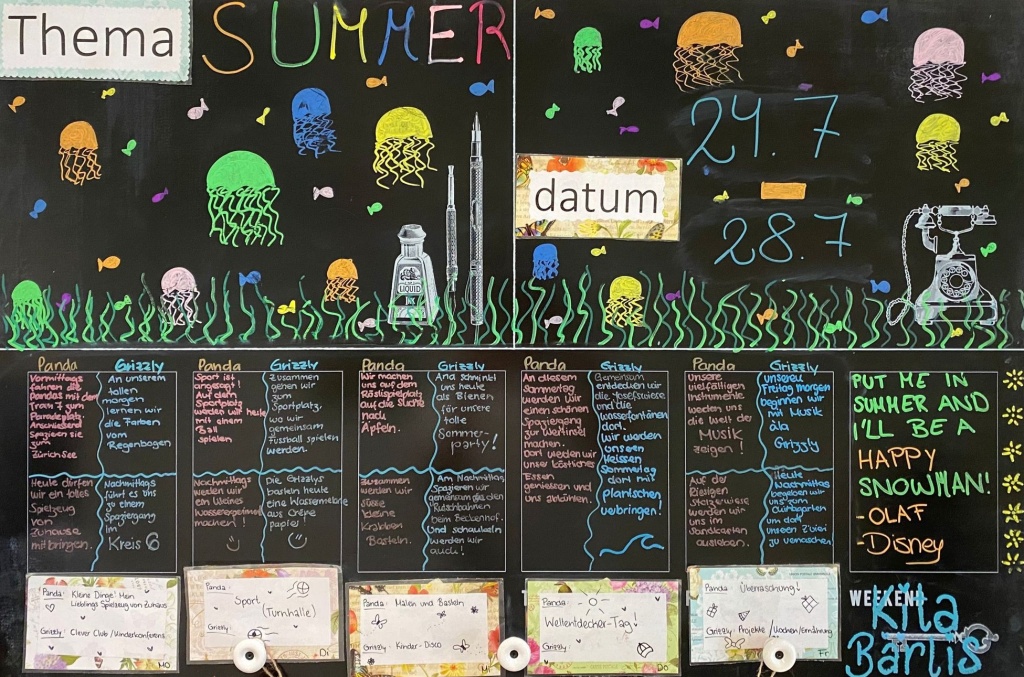 Thema
SUMMER
24.7
-
28.7
datum
LIQUID
INK
Panda
Grizzly
Vormittags
fahren die
Pandas mit dem
Tram 7 zum
Anschliessend
Spazieren sie
zum
Zürich See
An unserem
tollen
morgen
lernen wir
die Farben
vom
Regenbogen
Heute dürfen
wir ein tolles
Spielzeug
von
Zuhause
mitbringen.
Nachmittags
führt es uns
zu einem
Spaziergang
im
Kreis 6
Panda
Grizzly
Sport ist
angesagt!
Auf dem
Sportplatz
werden wir heute
mit einem
Ball
spielen
Zusammen
gehen wir
zum
Sportplatz,
wo wir
gemeinsam
Fussball spielen
werden.
Nachmittags
werden wir
ein kleines
machen!
Die Grizzlys
basteln heute
eine Wassermelone
aus Crêpe
papier!
Panda
Grizzly
Wir machen
uns auf dem
auf die Suche
nach
Äpfeln.
Ana schminkt
uns heute
als Bienen
für unsere
tolle
Sommer-
party!
Zusammen
werden wir
süsse
kleine
Krabben
Basteln.
Am Nachmittag
Spazieren wir
gemeinsam zu den
Rutschbahnen
beim Beckenhof.
Und schaukeln
werden wir
auch!
Panda
Grizzly
An diesem
Sommertag
werden wir
einen schönen
Spaziergang
zur
machen.
Dort werden wir
unser köstliches
Essen
geniessen und
uns abkühlen.
Gemeinsam
entdecken wir
die Josefswiese
und die
Wasserfontänen
dort.
Wir werden
unseren
Heissen
Sommertag
dort mit
planschen
verbringen!
Panda
Grizzly
Unsere
vielfältigen
Instrumente
werden uns
die Welt der
MUSIK
zeigen!
Unseren
Freitag morgen
beginnen wir
mit Musik
à la
Grizzly
Auf der
Riesigen
werden wir
uns im
Sandkasten
austoben.
Heute
Nachmittag
begeben wir
uns zum
um dort
unseren Z'vieri
zu vernaschen.
PUT ME IN
SUMMER AND
I'LL BE A
HAPPY
SNOWMAN!
-OLAF
-Disney
Panda: Kleine Dinge! Mein
Lieblings Spielzeug von Zuhaus
Grizzly: Clever Club / Kinderkonferenz
Mo
Panda:
Sport
(Turnhalle)
Grizzly:
Di
Panda: Malen und Basteln
Grizzly: Kinder-Disco
Mi
Panda:
Weltentdecher-Tag!
Grizzly:
Do
Panda: Überraschung!
Grizzly: Projekte / Kochen/Ernährung
Fr
WEEKEND
Kita
Bärtis